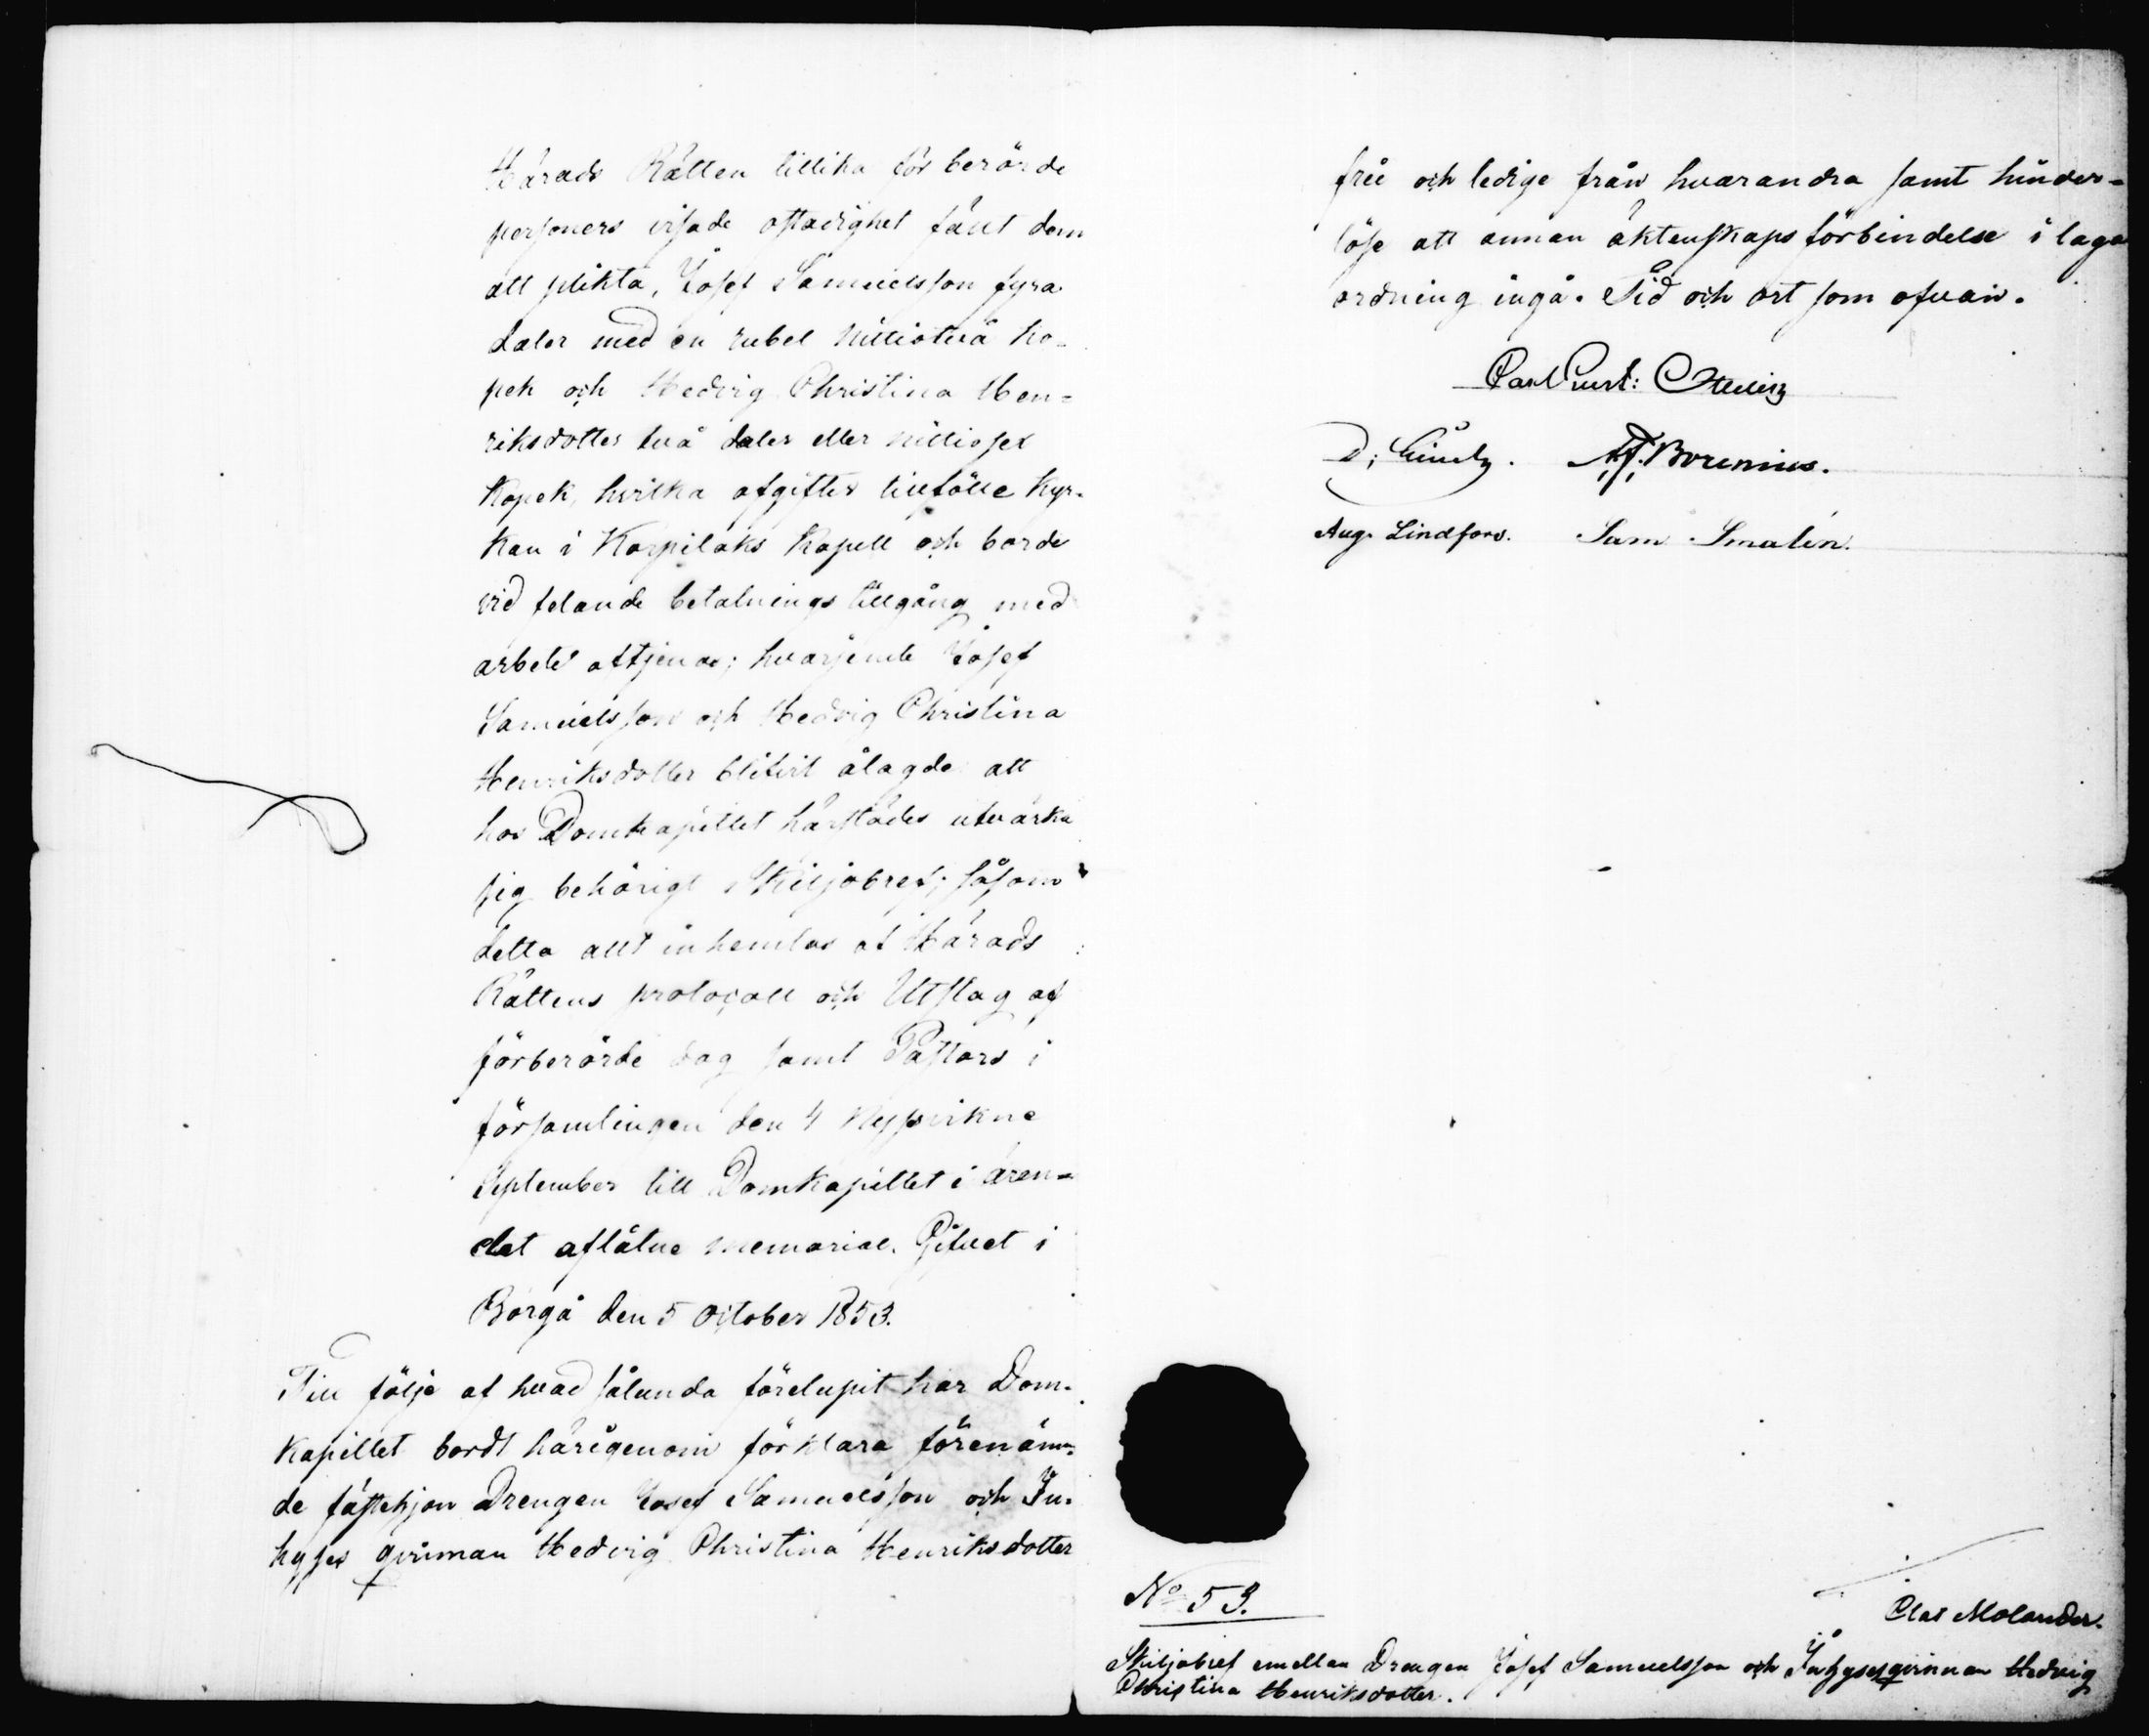 Härads Rätten tillika för berörde
personers visade ostadighet fänt dem
att plikta, Josef Samuelsson fyra
daler med en rubel nittiotvå ko-
pek och Hedvig Christina Hen-
riksdotter två daler eller nittiosex
Kopek, hvilka afgifter tillfölle Kyr-
kan i Korpilaks Kapell och borde
vid felande betalnings tillgång med
arbete aftjenas; hvarjemte Josef
Samuelsson och Hedvig Christina
Henriksdotter blifvit ålagde att
hos Domkapitlet härstädes utverka
sig behörigt Skiljobref; såsom
detta allt inhemtas af Härads
Rättens protocoll och Utslag af
förberörde dag samt Pastors i
församlingen den 4 nyssvikne
September till Domkapitlet i ären-
det aflåtne memorial. Gifvet i
Borgå den 5 October 1853.
Till följe af hvad sålunda förelupit har Dom-
kapitlet bordt härigenom förklara förenämn-
de fästehjon Drengen Josef Samuelsson och In-
hyses qvinnan Hedvig Christina Henriksdotter
frie och ledige från hvarandra samt hinder-
löse att annan äktenskaps förbindelse i laga
ordning ingå. Tid och ort som ofvan.
Carl Gust: Ottelin
A. J. Borenius.
Aug. Lindfors. Sam Smalén.
No 53.
Clas Molander.
Skiljobref emellan Drengen Josef Samuelsson och Inhysesqvinnan Hedvig
Christina Henriksdotter.